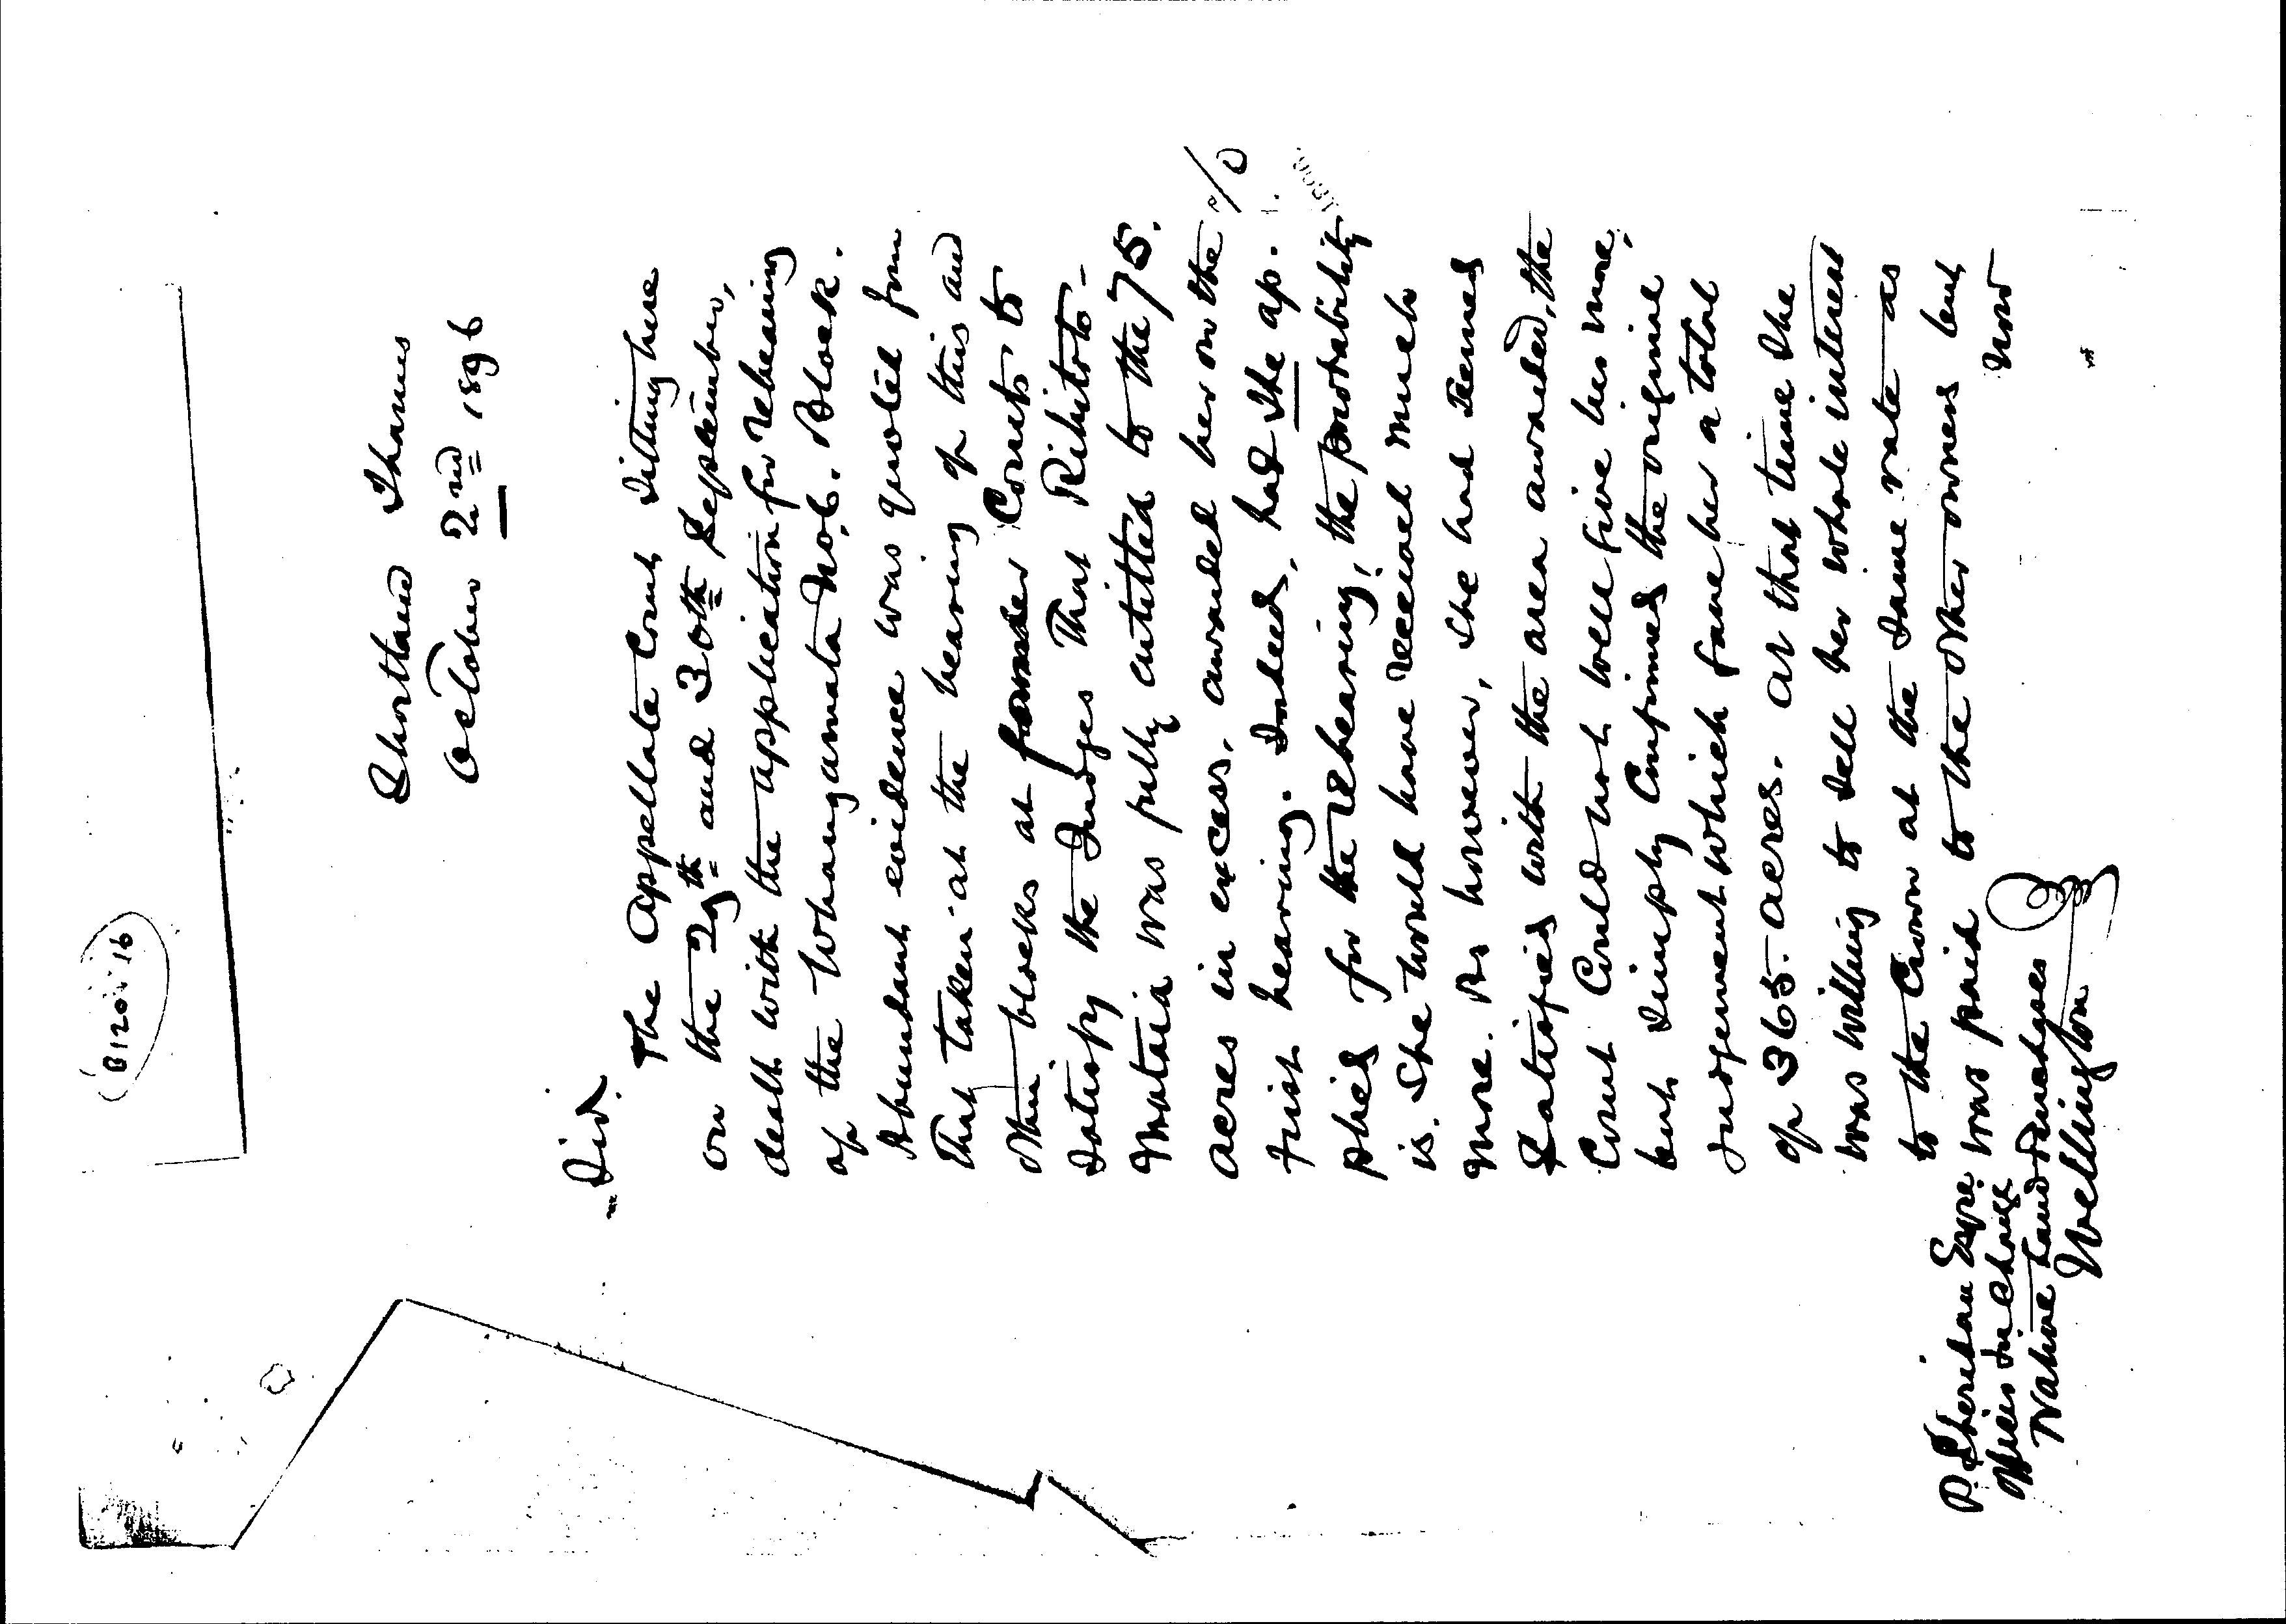 Shortland Thames
October 2nd 1896
Sir.
The Appellate Court sitting here
on the 29th and 30th September,
dealt with the application for rehearing
of the Whangamata No 6. Block.
Abundant evidence was quoted from
that taken at the hearing of this and
other blocks at former Courts to
satisfy the Judges that Rihitoto
Mataia was fully entitled to the 75.
acres in excess, awarded her on the
first hearing. Indeed, had she ap-
plied for the rehearing, the probability
is. she would have received much
more. As however, she had seemed
satisfied with the area awarded, the
Court could not well give her more,
but simply confirmed the original
judgement which gave her a total
of 365. acres. At that time she
was willing to sell her whole interest
to the Crown at the same rate as
was paid to the other owners but
now
P. Sheridan Esqre
Officer in Charge
Native Land Purchases
Wellington